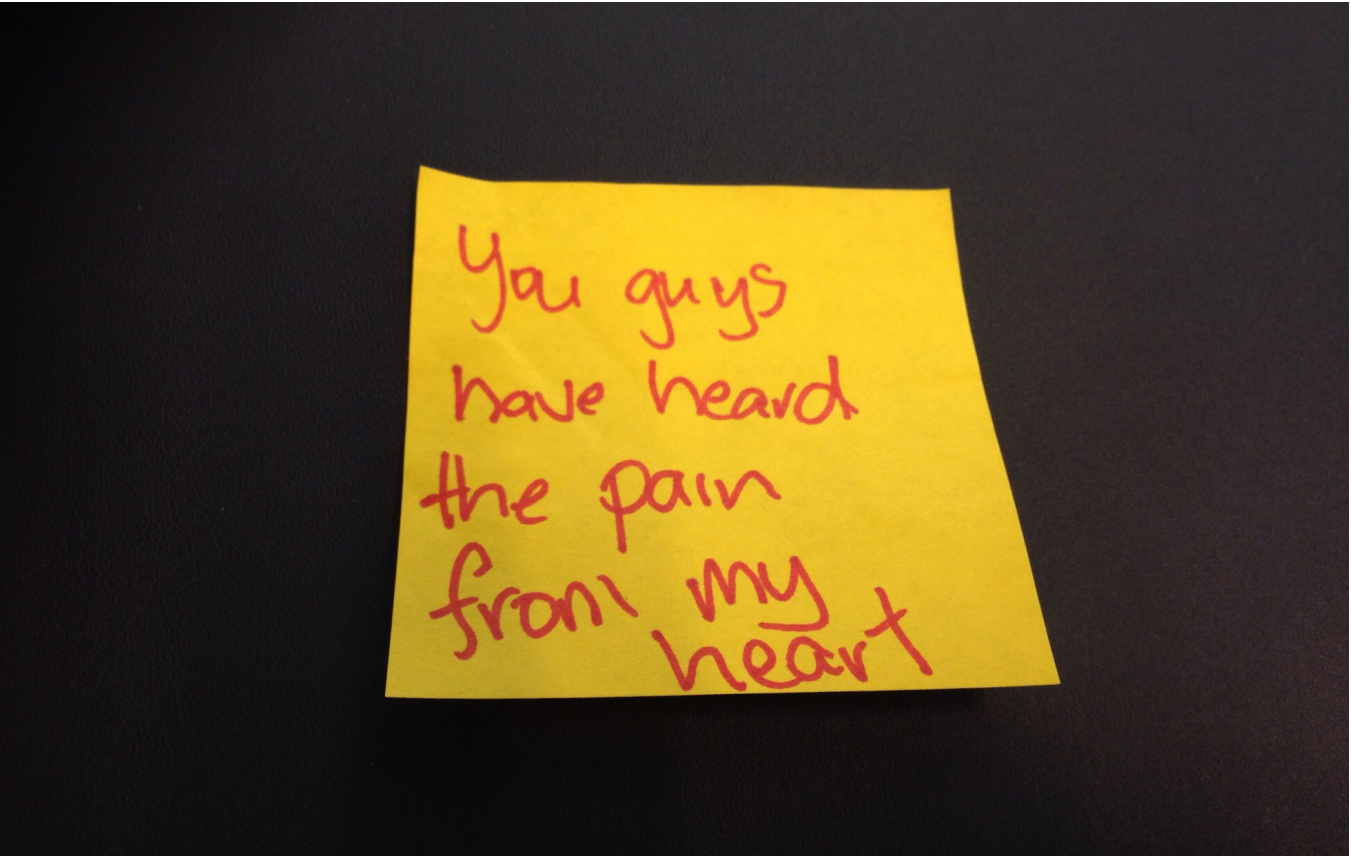 You guys
have heard
the pain
from my
heart